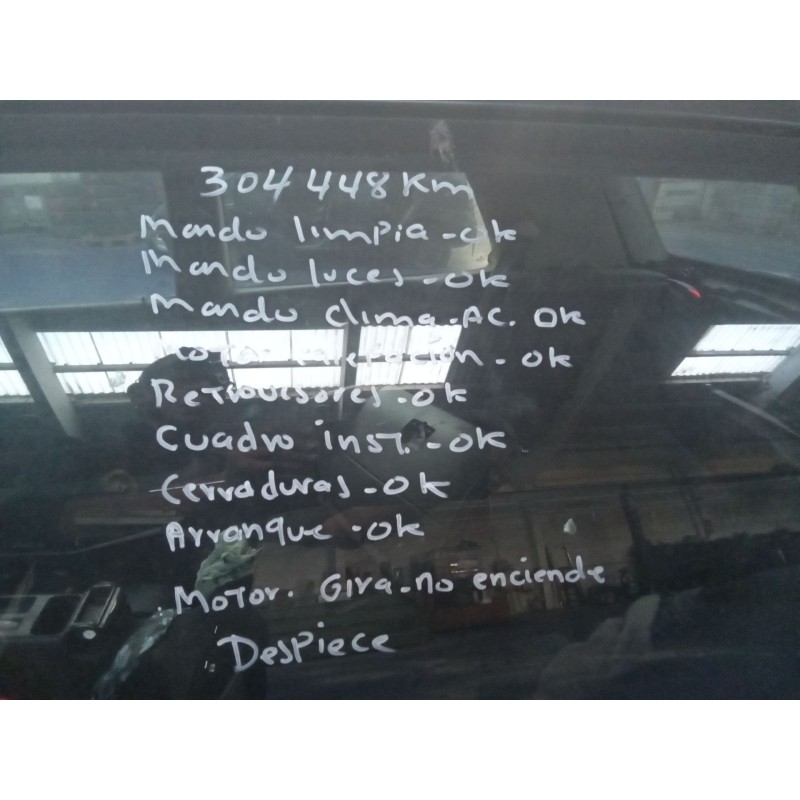 304448Km
Mando limpia-ok
Mando luces-ok
Mando clima-AC. ok
Motor calefación-ok
Retrovisores-ok
Cuadro inst.-ok
Cerraduras-ok
Arranque-ok
Motor. Gira-no enciende
Despiece